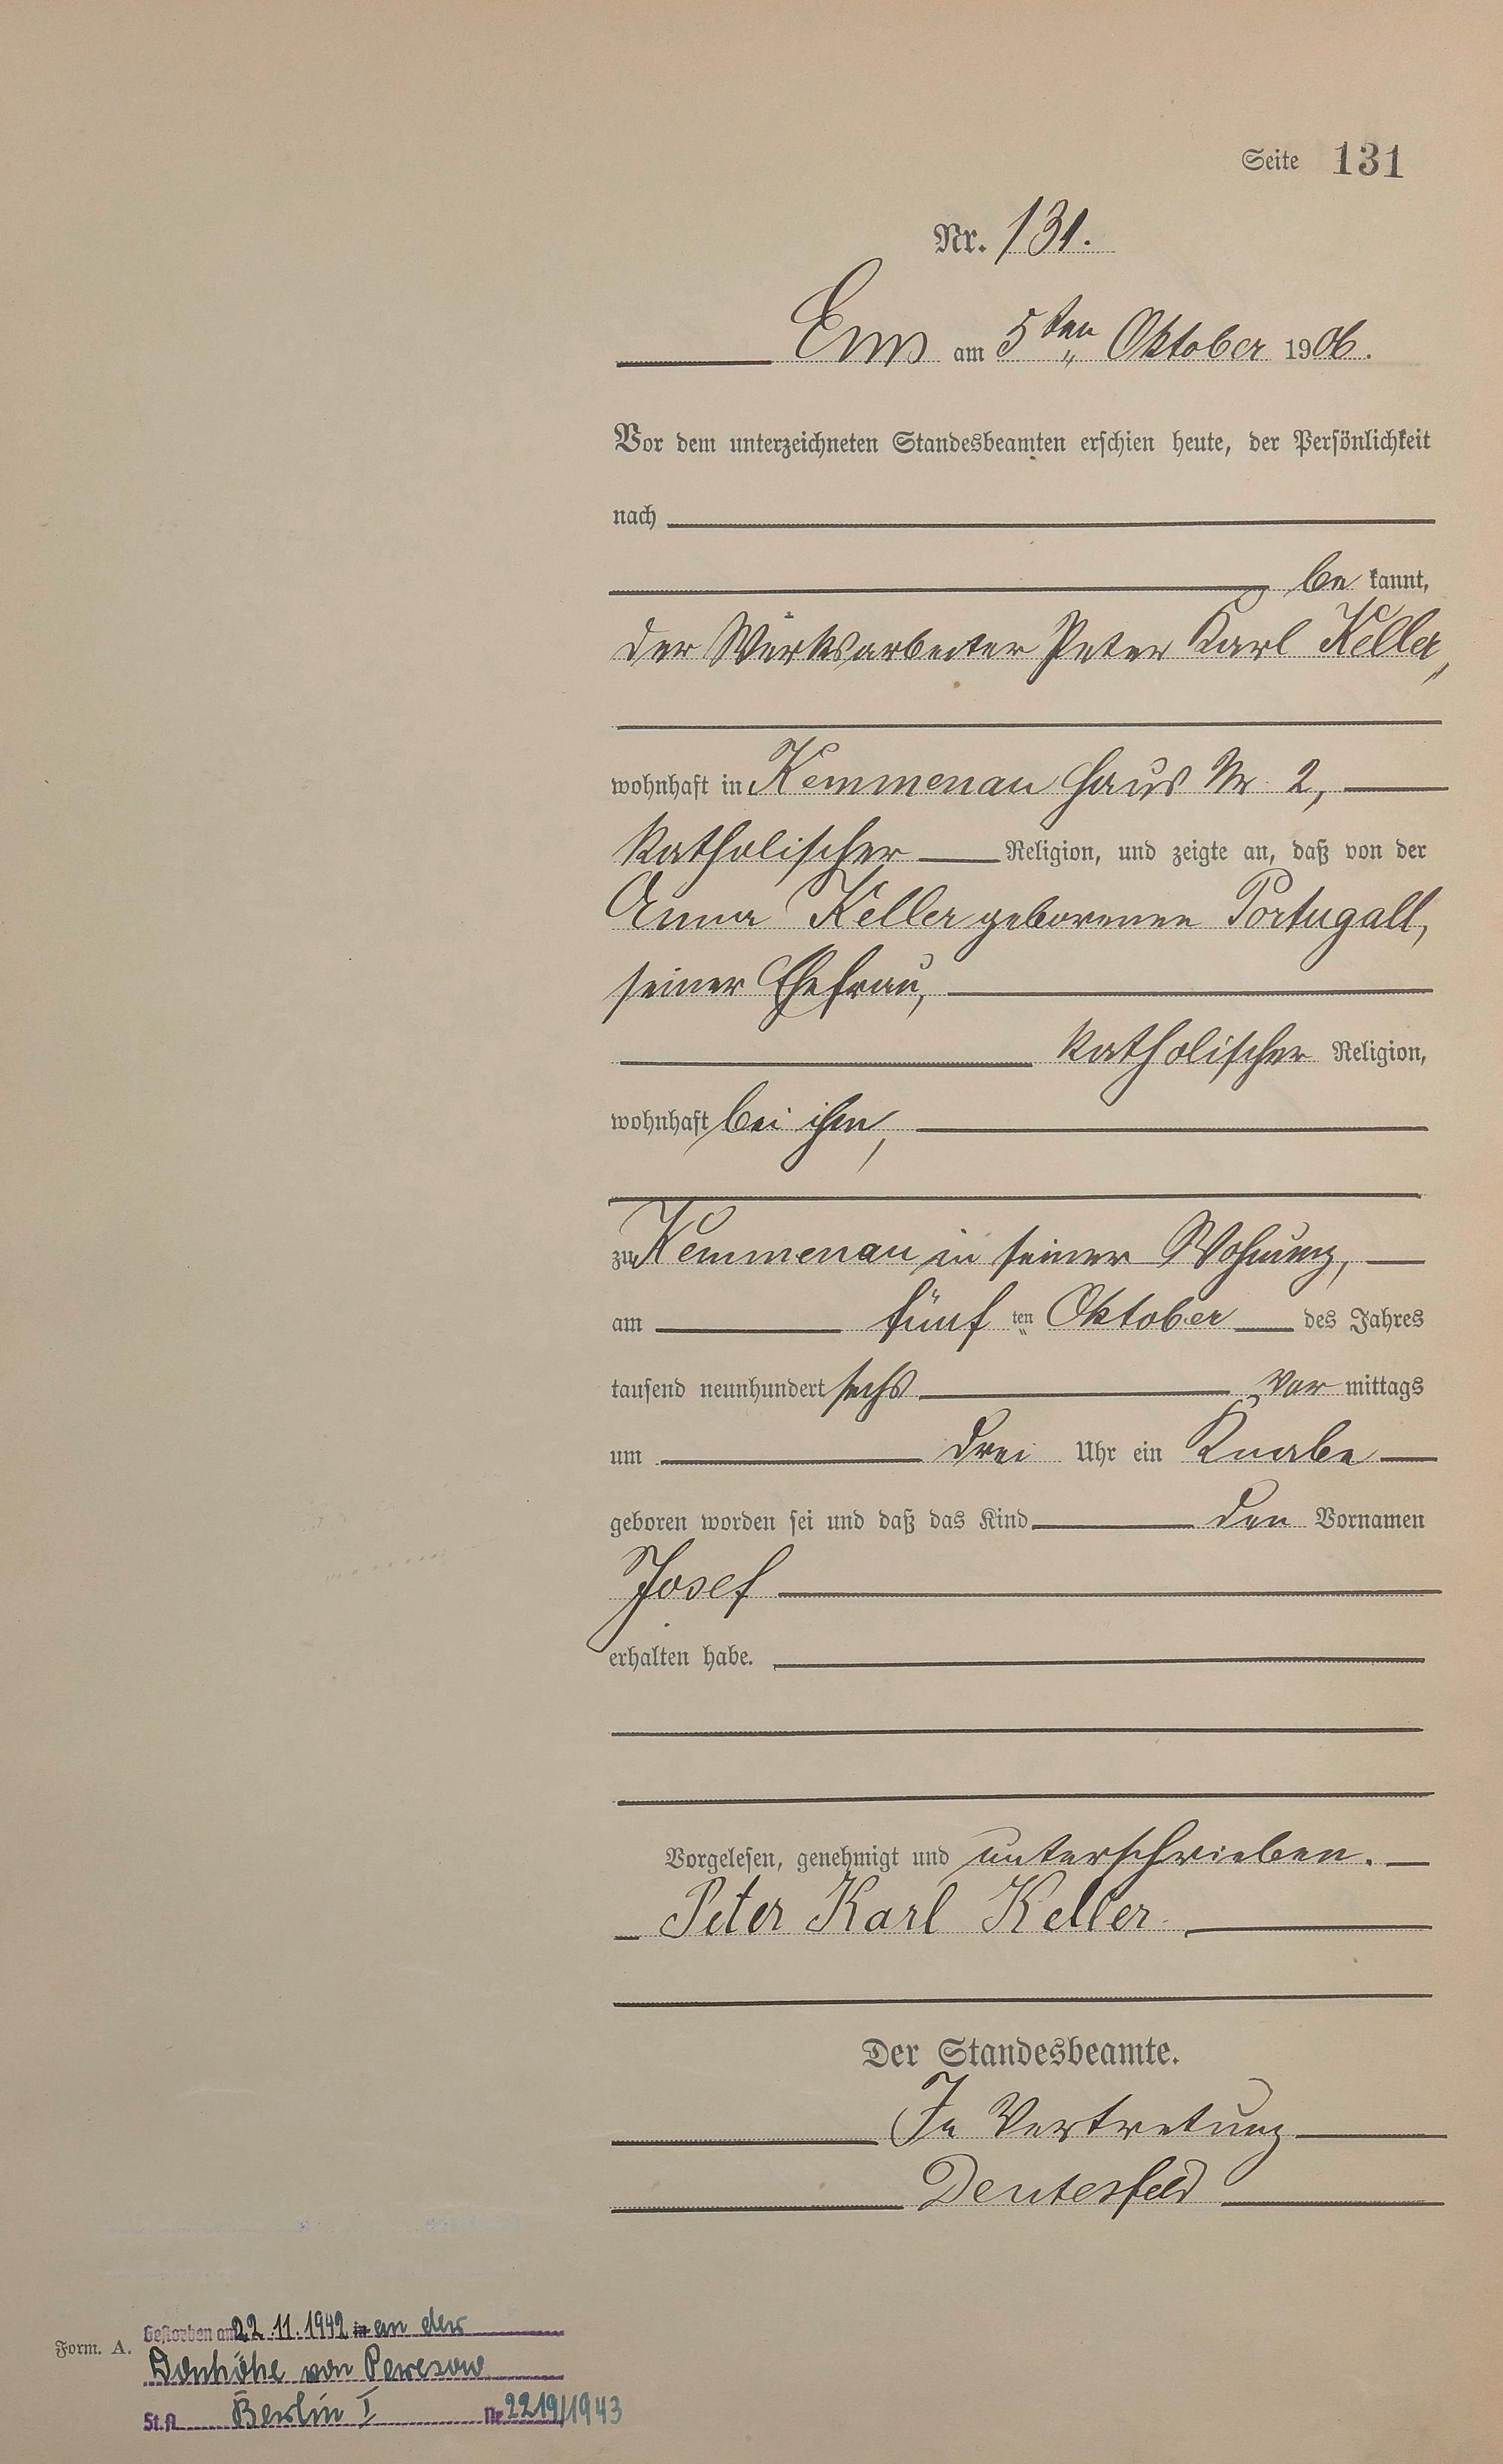 Seite 131
Nr. 131.
Ems am 5ten Oktober 1906.
Vor dem unterzeichneten Standesbeamten erschien heute, der Persönlichkeit
nach
be kannt,
der Werksarbeiter Peter Karl Keller,
wohnhaft in Kemmenau Haus Nr. 2,
katholischer Religion, und zeigte an, daß von der
Anna Keller geborenen Portugall,
seiner Ehefrau,
katholischer Religion,
wohnhaft bei ihm,
zu Kemmenau in seiner Wohnung,
am fünf ten Oktober des Jahres
tausend neunhundert sechs Vor mittags
um drei Uhr ein Knabe
geboren worden sei und daß das Kind den Vornamen
Josef
erhalten habe.
Vorgelesen, genehmigt und unterschrieben.
Peter Karl Keller
Der Standesbeamte.
In Vertretung
Deutesfeld
Gestorben am 22.11.1942 in an der
Form. A.
Donhöhe von Peresow
St.A. Berlin I Nr. 2219/1943